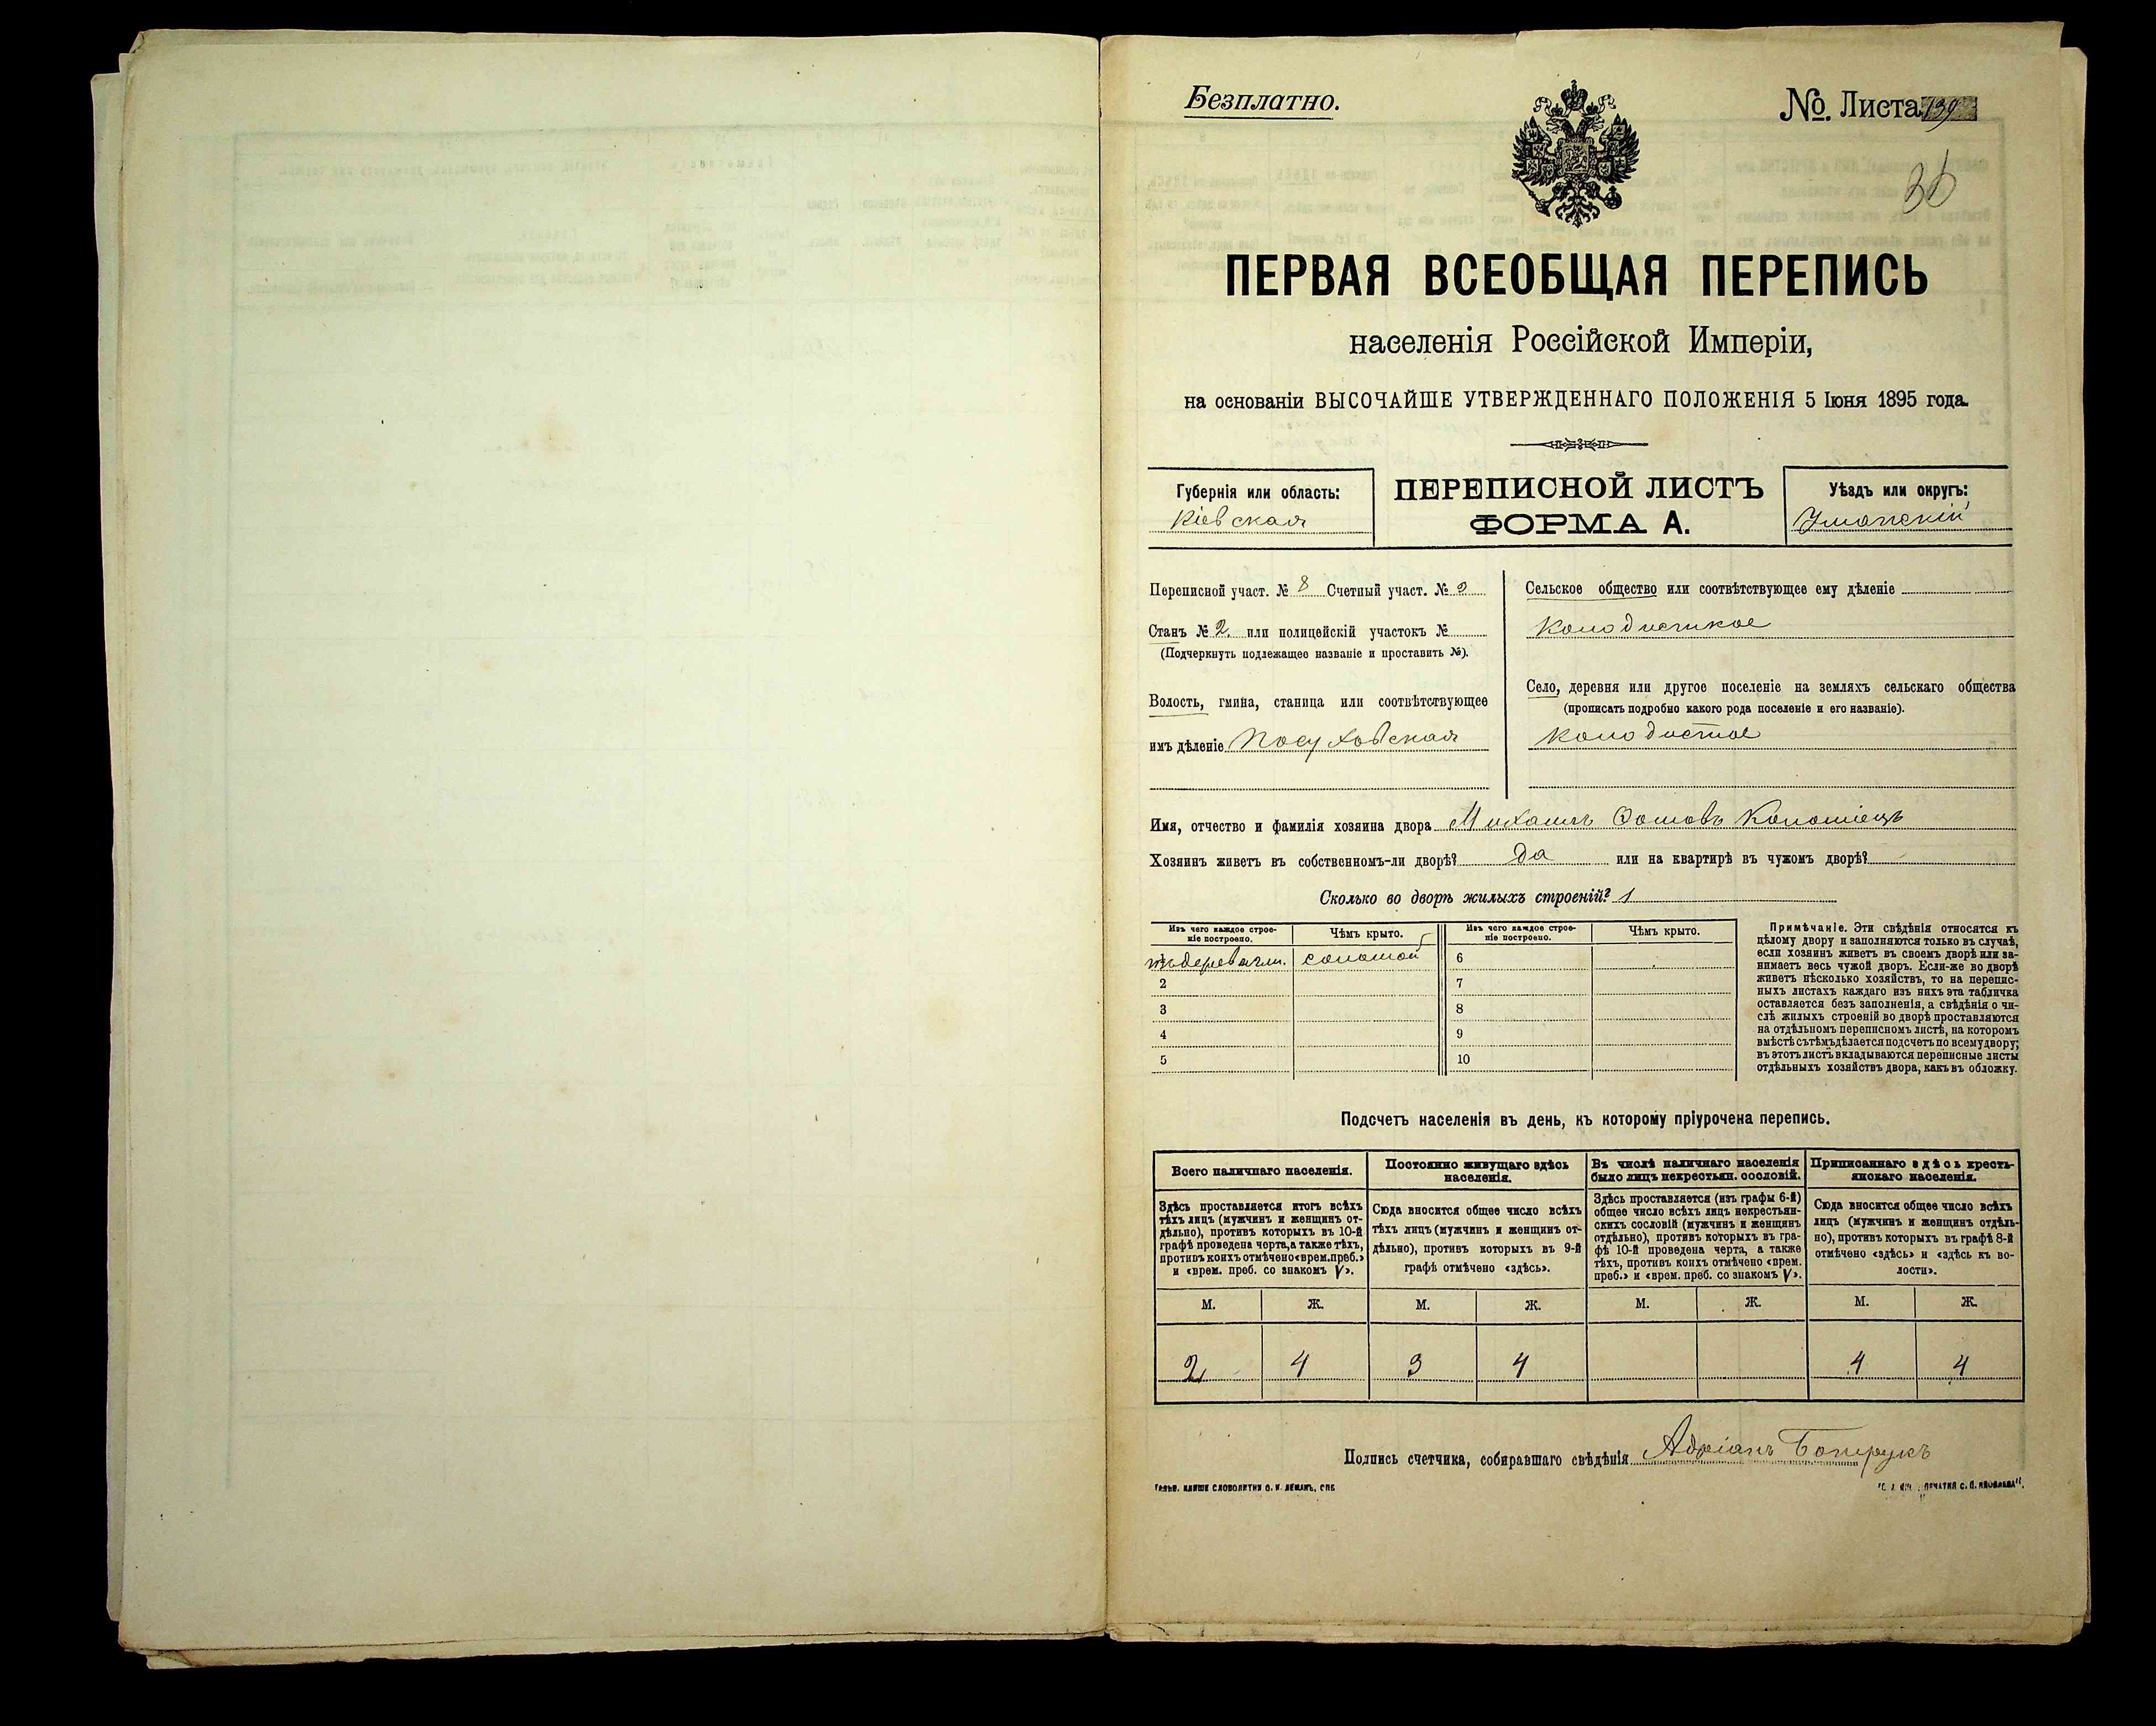 Безплатно.
№. Листа 139
36
ПЕРВАЯ ВСЕОБЩАЯ ПЕРЕПИСЬ
населенія Россійской Имперіи,
на основаніи ВЫСОЧАЙШЕ УТВЕРЖДЕННАГО ПОЛОЖЕНІЯ 5 Іюня 1895 года.
Губернія или область:
Кіевская
ПЕРЕПИСНОЙ ЛИСТЪ
ФОРМА А.
Уѣздъ или округъ:
Уманскій
Переписной участ. № 8 Счетный участ. № 2
Станъ № 2. или полицейскій участокъ №
(Подчеркнуть подлежащее названіе и проставить №).
Волость, гмина, станица или соотвѣтствующее
имъ дѣленіе Посуховская
Сельское общество или соотвѣтствующее ему дѣленіе
Колодисткое
Село, деревня или другое поселеніе на земляхъ сельскаго общества
(прописать подробно какого рода поселеніе и его названіе).
Колодистое
Имя, отчество и фамилія хозяина двора Михаилъ Фомовъ Коломіецъ
Хозяинъ живетъ въ собственномъ-ли дворѣ? да или на квартирѣ въ чужомъ дворѣ?
Сколько во дворѣ жилыхъ строеній? 1
Изъ чего каждое строе-
ніе построено.
Чѣмъ крыто.
Изъ чего каждое строе-
ніе построено.
Чѣмъ крыто.
соломой 6
2 7
3 8
4 9
5 10
Примѣчаніе. Эти свѣдѣнія относятся къ
цѣлому двору и заполняются только въ случаѣ,
если хозяинъ живетъ въ своемъ дворѣ или за-
нимаетъ весь чужой дворъ. Если-же во дворѣ
живетъ нѣсколько хозяйствъ, то на перепис-
ныхъ листахъ каждаго изъ нихъ эта табличка
оставляется безъ заполненія, а свѣдѣнія о чи-
слѣ жилыхъ строеній во дворѣ проставляются
на отдѣльномъ переписномъ листѣ, на которомъ
вмѣстѣ съ тѣмъ дѣлается подсчетъ по всему двору;
въ этотъ листъ вкладываются переписные листы
отдѣльныхъ хозяйствъ двора, какъ въ обложку.
Подсчетъ населенія въ день, къ которому пріурочена перепись.
Всего наличнаго населенія.
Здѣсь проставляется итогъ всѣхъ
тѣхъ лицъ (мужчинъ и женщинъ от-
дѣльно), противъ которыхъ въ 10-й
графѣ проведена черта, а также тѣхъ,
противъ коихъ отмѣчено «врем. преб.»
и «врем. преб. со знакомъ V».
Постоянно живущаго здѣсь
населенія.
Сюда вносится общее число всѣхъ
тѣхъ лицъ (мужчинъ и женщинъ от-
дѣльно), противъ которыхъ въ 9-й
графѣ отмѣчено «здѣсь».
Въ числѣ наличнаго населенія
было лицъ некрестьян. сословій.
Здѣсь проставляется (изъ графы 6-й)
общее число всѣхъ лицъ некрестьян-
скихъ сословій (мужчинъ и женщинъ
отдѣльно), противъ которыхъ въ гра-
фѣ 10-й проведена черта, а также
тѣхъ, противъ коихъ отмѣчено «врем.
преб.» и «врем. преб. со знакомъ V».
Приписаннаго здѣсь кресть-
янскаго населенія.
Сюда вносится общее число всѣхъ
лицъ (мужчинъ и женщинъ отдѣль-
но), противъ которыхъ въ графѣ 8-й
отмѣчено «здѣсь» и «здѣсь къ во-
лости».
М. Ж. М. Ж. М. Ж. М. Ж.
2 4 3 4 4 4
Подпись счетчика, собиравшаго свѣдѣнія Адріанъ